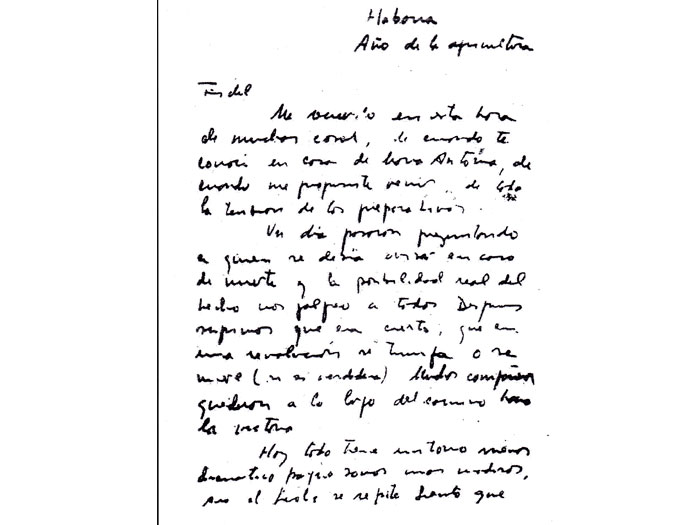 Habana
Año de la agricultura
Fidel
Me recuerdo en esta hora
de muchas cosas, de cuando te
conocí en casa de María Antonia, de
cuando me propusiste venir, de toda
la tensión de los preparativos.
Un día pasaron preguntando
a quien se debía avisar en caso
de muerte y la posibilidad real del
hecho nos golpeó a todos. Después
supimos que era cierto, que en
una revolución se triunfa o se
muere (si es verdadera) Muchos compañeros
quedaron a lo largo del camino hacia
la victoria
Hoy todo tiene un tono menos
dramático porque somos más maduros,
pero el hecho se repite. Siento que